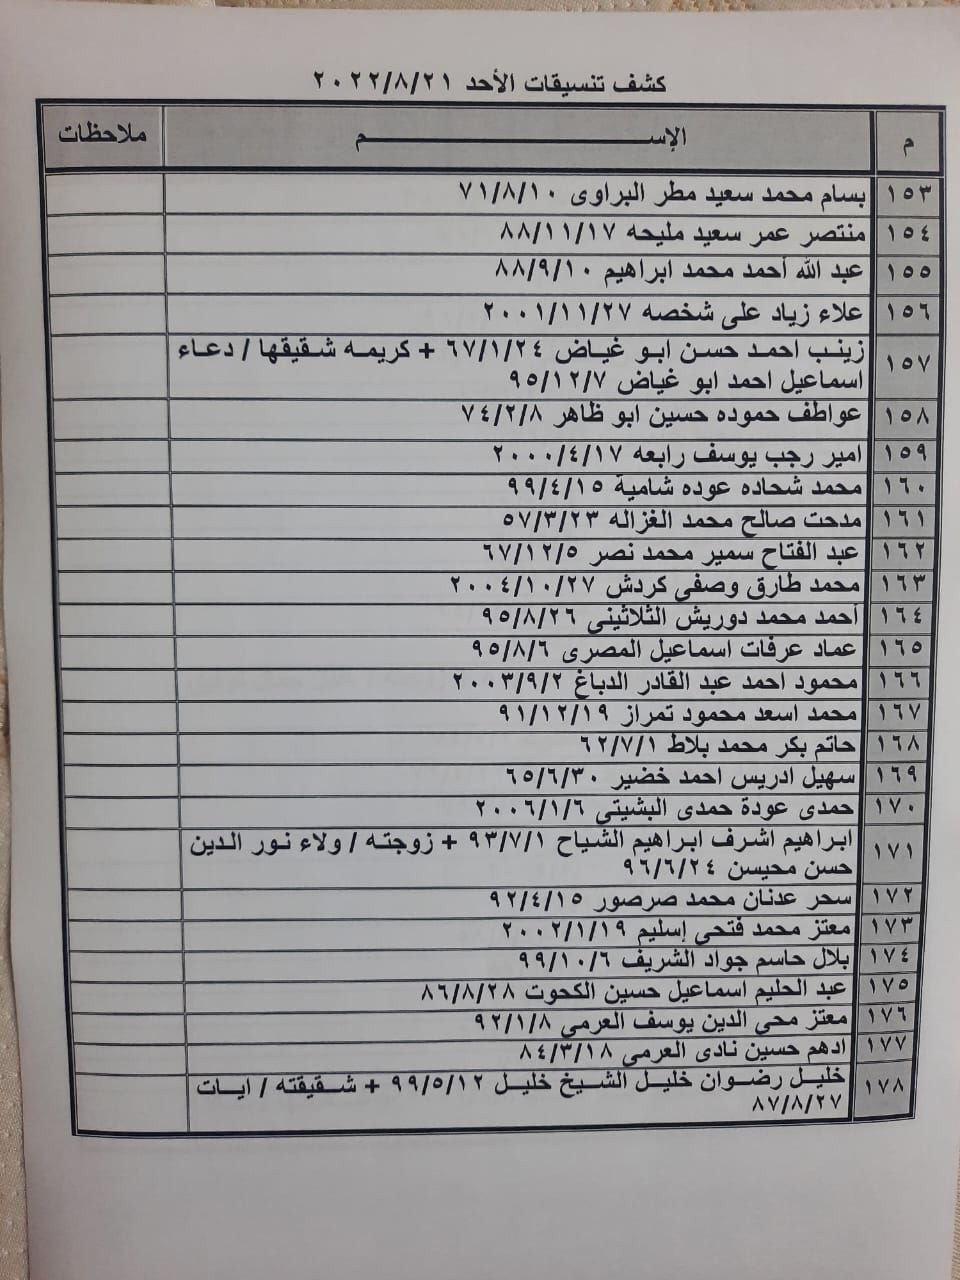 كشف تنسيقات الأحد ٢٠٢٢/٨/٢١
م الإســـــــــــــم ملاحظات
١٥٣ بسام محمد سعيد مطر البراوى ٧١/٨/١٠
١٥٤ منتصر عمر سعيد مليحه ٨٨/١١/١٧
١٥٥ عبد الله أحمد محمد ابراهيم ٨٨/٩/١٠
١٥٦ علاء زياد على شخصه ٢٠٠١/١١/٢٧
١٥٧ زينب احمد حسن ابو غياض ٦٧/١/٢٤ + كريمه شقيقها / دعاء
اسماعيل احمد ابو غياض ٩٥/١٢/٧
١٥٨ عواطف حموده حسين ابو ظاهر ٧٤/٢/٨
١٥٩ امير رجب يوسف رابعه ٢٠٠٠/٤/١٧
١٦٠ محمد شحاده عوده شامية ٩٩/٤/١٥
١٦١ مدحت صالح محمد الغزاله ٥٧/٣/٢٣
١٦٢ عبد الفتاح سمير محمد نصر ٦٧/١٢/٥
١٦٣ محمد طارق وصفي كردش ٢٠٠٤/١٠/٢٧
١٦٤ أحمد محمد دوريش الثلاثيني ٩٥/٨/٢٦
١٦٥ عماد عرفات اسماعيل المصرى ٩٥/٨/٦
١٦٦ محمود احمد عبد القادر الدباغ ٢٠٠٣/٩/٢
١٦٧ محمد اسعد محمود تمراز ٩١/١٢/١٩
١٦٨ حاتم بكر محمد بلاط ٦٢/٧/١
١٦٩ سهيل ادريس احمد خضير ٦٥/٦/٣٠
١٧٠ حمدى عودة حمدى البشيتي ٢٠٠٦/١/٦
١٧١ ابراهيم اشرف ابراهيم الشياح ٩٣/٧/١ + زوجته / ولاء نور الدين
حسن محيسن ٩٦/٦/٢٤
١٧٢ سحر عدنان محمد صرصور ٩٢/٤/١٥
١٧٣ معتز محمد فتحي إسليم ٢٠٠٢/١/١٩
١٧٤ بلال حاسم جواد الشريف ٩٩/١٠/٦
١٧٥ عبد الحليم اسماعيل حسين الكحوت ٨٦/٨/٢٨
١٧٦ معتز محى الدين يوسف العرمي ٩٢/١/٨
١٧٧ ادهم حسين نادى العرمي ٨٤/٣/١٨
١٧٨ خليل رضوان خليل الشيخ خليل ٩٩/٥/١٢ + شقيقته / ايات
٨٧/٨/٢٧